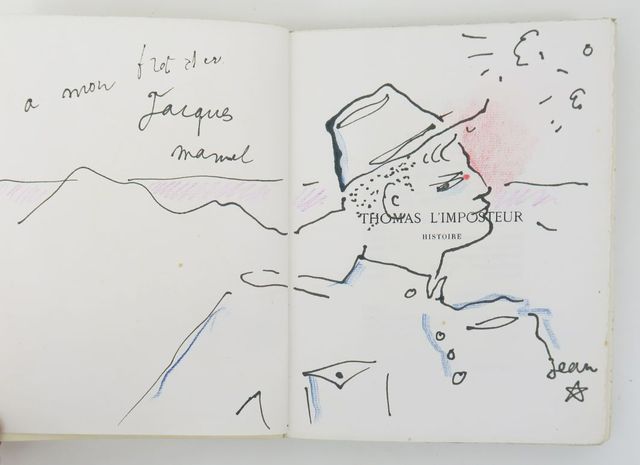 a mon
Jacques
manuel
THOMAS L'IMPOSTEUR
HISTOIRE
Jean